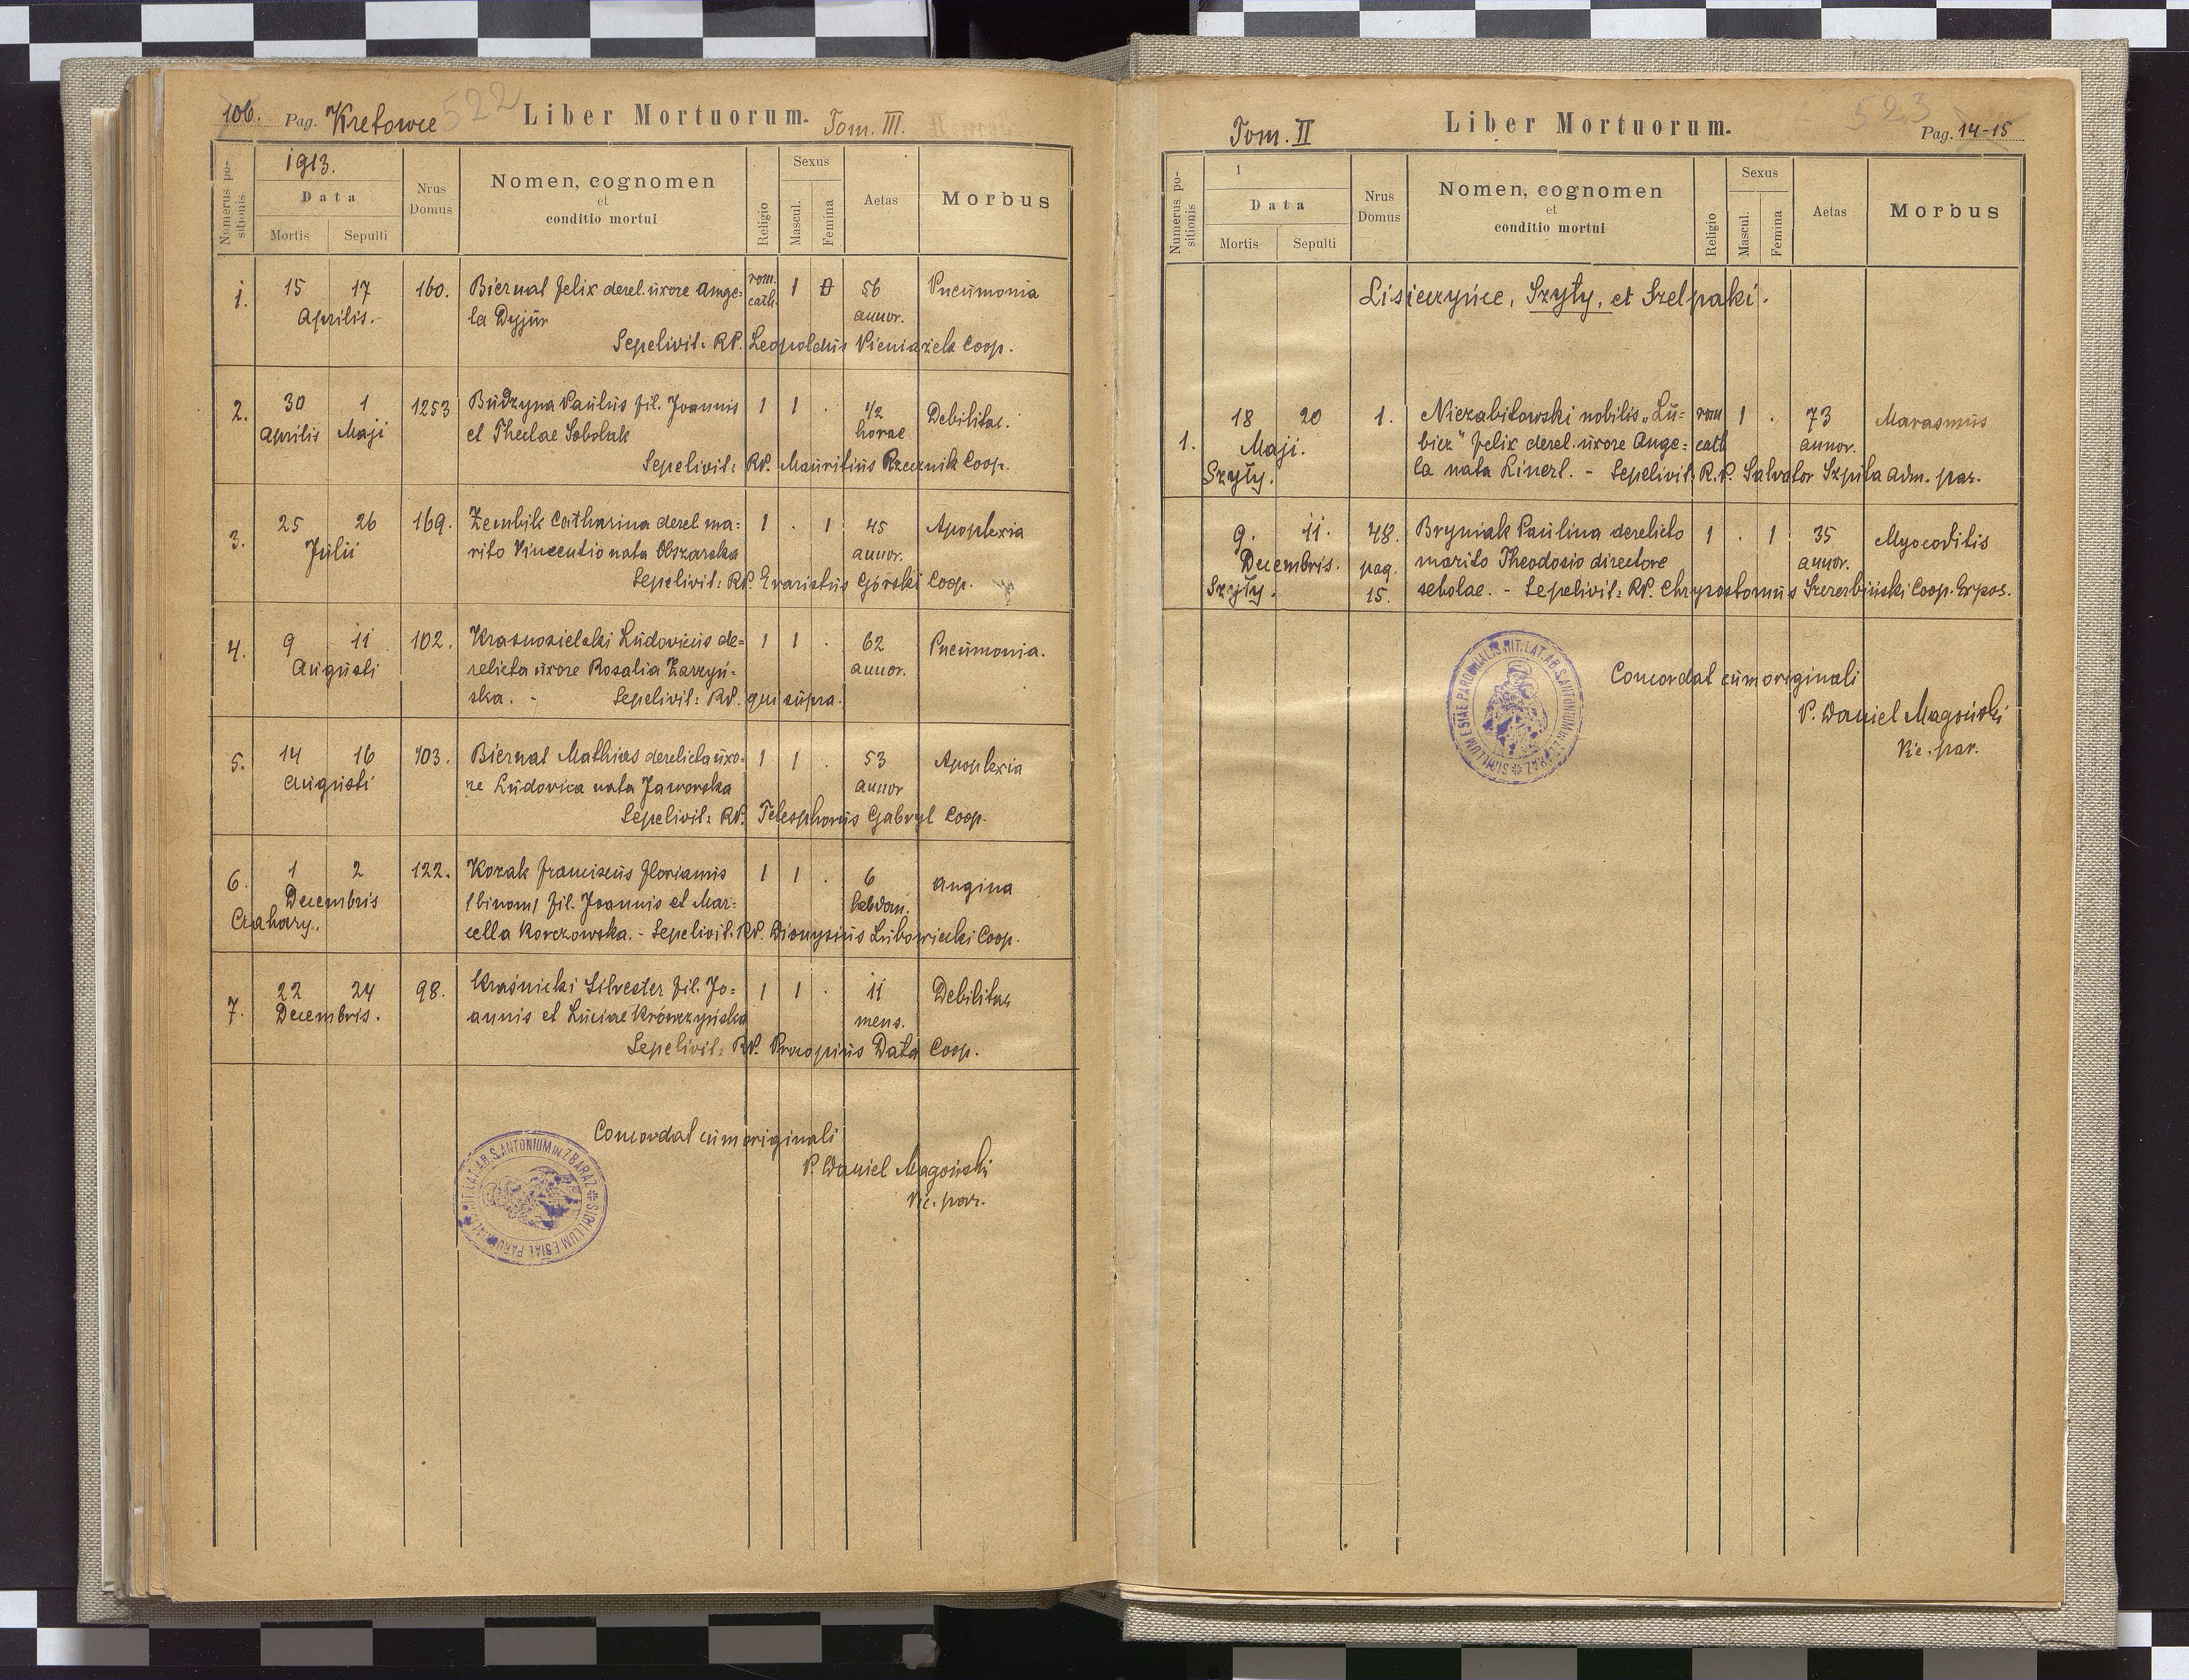 106. Pag. Kretowce 522 Liber Mortuorum. Tom. III.
Numerus positionis
1913.
Data
Mortis Sepulti
Nrus Domus
Nomen, cognomen
et
conditio mortui
Religio
Sexus
Mascul. Femina
Aetas
Morbus
1. 15 17 160. Biernat Felix derel. uxore Ange= rom. 1 56 Pneumonia
Aprilis. la Dyjur cath. annor.
Sepelivit: RP. Leopoldus Pieniążek Coop.
2. 30 1 1253 Budzyna Paulus fil. Joannis 1 1 . 1/2 Debilitas.
Aprilis Maji et Theclae Sobolak horae
Sepelivit: RP. Mauritius Rzeznik Coop.
3. 25 26 169. Zembik Catharina derel. ma= 1 . 1 45 Apoplexia
Julii rito Vincentio nata Obszarska annor.
Sepelivit: RP. Evaristus Górski Coop.
4. 9 11 102. Krasnosielski Ludovicus de= 1 1 . 62 Pneumonia.
Augusti relicta uxore Rosalia Zarzyń= annor.
ska. - Sepelivit: RP. qui supra.
5. 14 16 103. Biernat Mathias derelicta uxo- 1 1 . 53 Apoplexia
Augusti re Ludovica nata Jaworska annor
Sepelivit: RP. Telesphorus Gabryl Coop.
6. 1 2 122. Kozak Franciscus Florianus 1 1 . 6 Angina
Decembris /binom/ fil. Joannis et Mar= hebdom.
Czahary. cella Korczowska. - Sepelivit. RP. Dionysius Lubowiecki Coop.
7. 22 24 98. Kraśnicki Silvester fil. Jo= 1 1 . 11 Debilitas
Decembris. annis et Luciae Krówczyńska mens.
Sepelivit: RP. Procopius Data Coop.
Concordat cum originali
P. Daniel Magoński
Vic. par.
SIGILLUM ESIAE PAROCHIALIS RIT. LAT. AB. S. ANTONIUM IN ZBARAZ
Tom. II Liber Mortuorum. 523 Pag. 14-15
Numerus positionis
1
Data
Mortis Sepulti
Nrus Domus
Nomen, cognomen
et
conditio mortui
Religio
Sexus
Mascul. Femina
Aetas
Morbus
Lisieczyńce, Szyły, et Szelpaki.
18 20 1. Niezabitowski nobilis „Lu= rom 1 . 73 Marasmus
1. Maji. bicz" Felix derel. uxore Ange= cath annor.
Szyły. la nata Linerl. - Sepelivit: R.P. Salvator Szpila Adm. par.
9. 11. 48. Bryniak Paulina derelicto 1 . 1 35 Myocoditis
Decembris. pag. marito Theodosio directore annor.
Szyły. 15. scholae. - Sepelivit: RP. Chrysostomus Szczerbiński Coop. Expos.
Concordat cum originali
P. Daniel Magoński
Vic. par.
SIGILLUM ESIAE PAROCHIALIS RIT. LAT. AB. S. ANTONIUM IN ZBARAZ